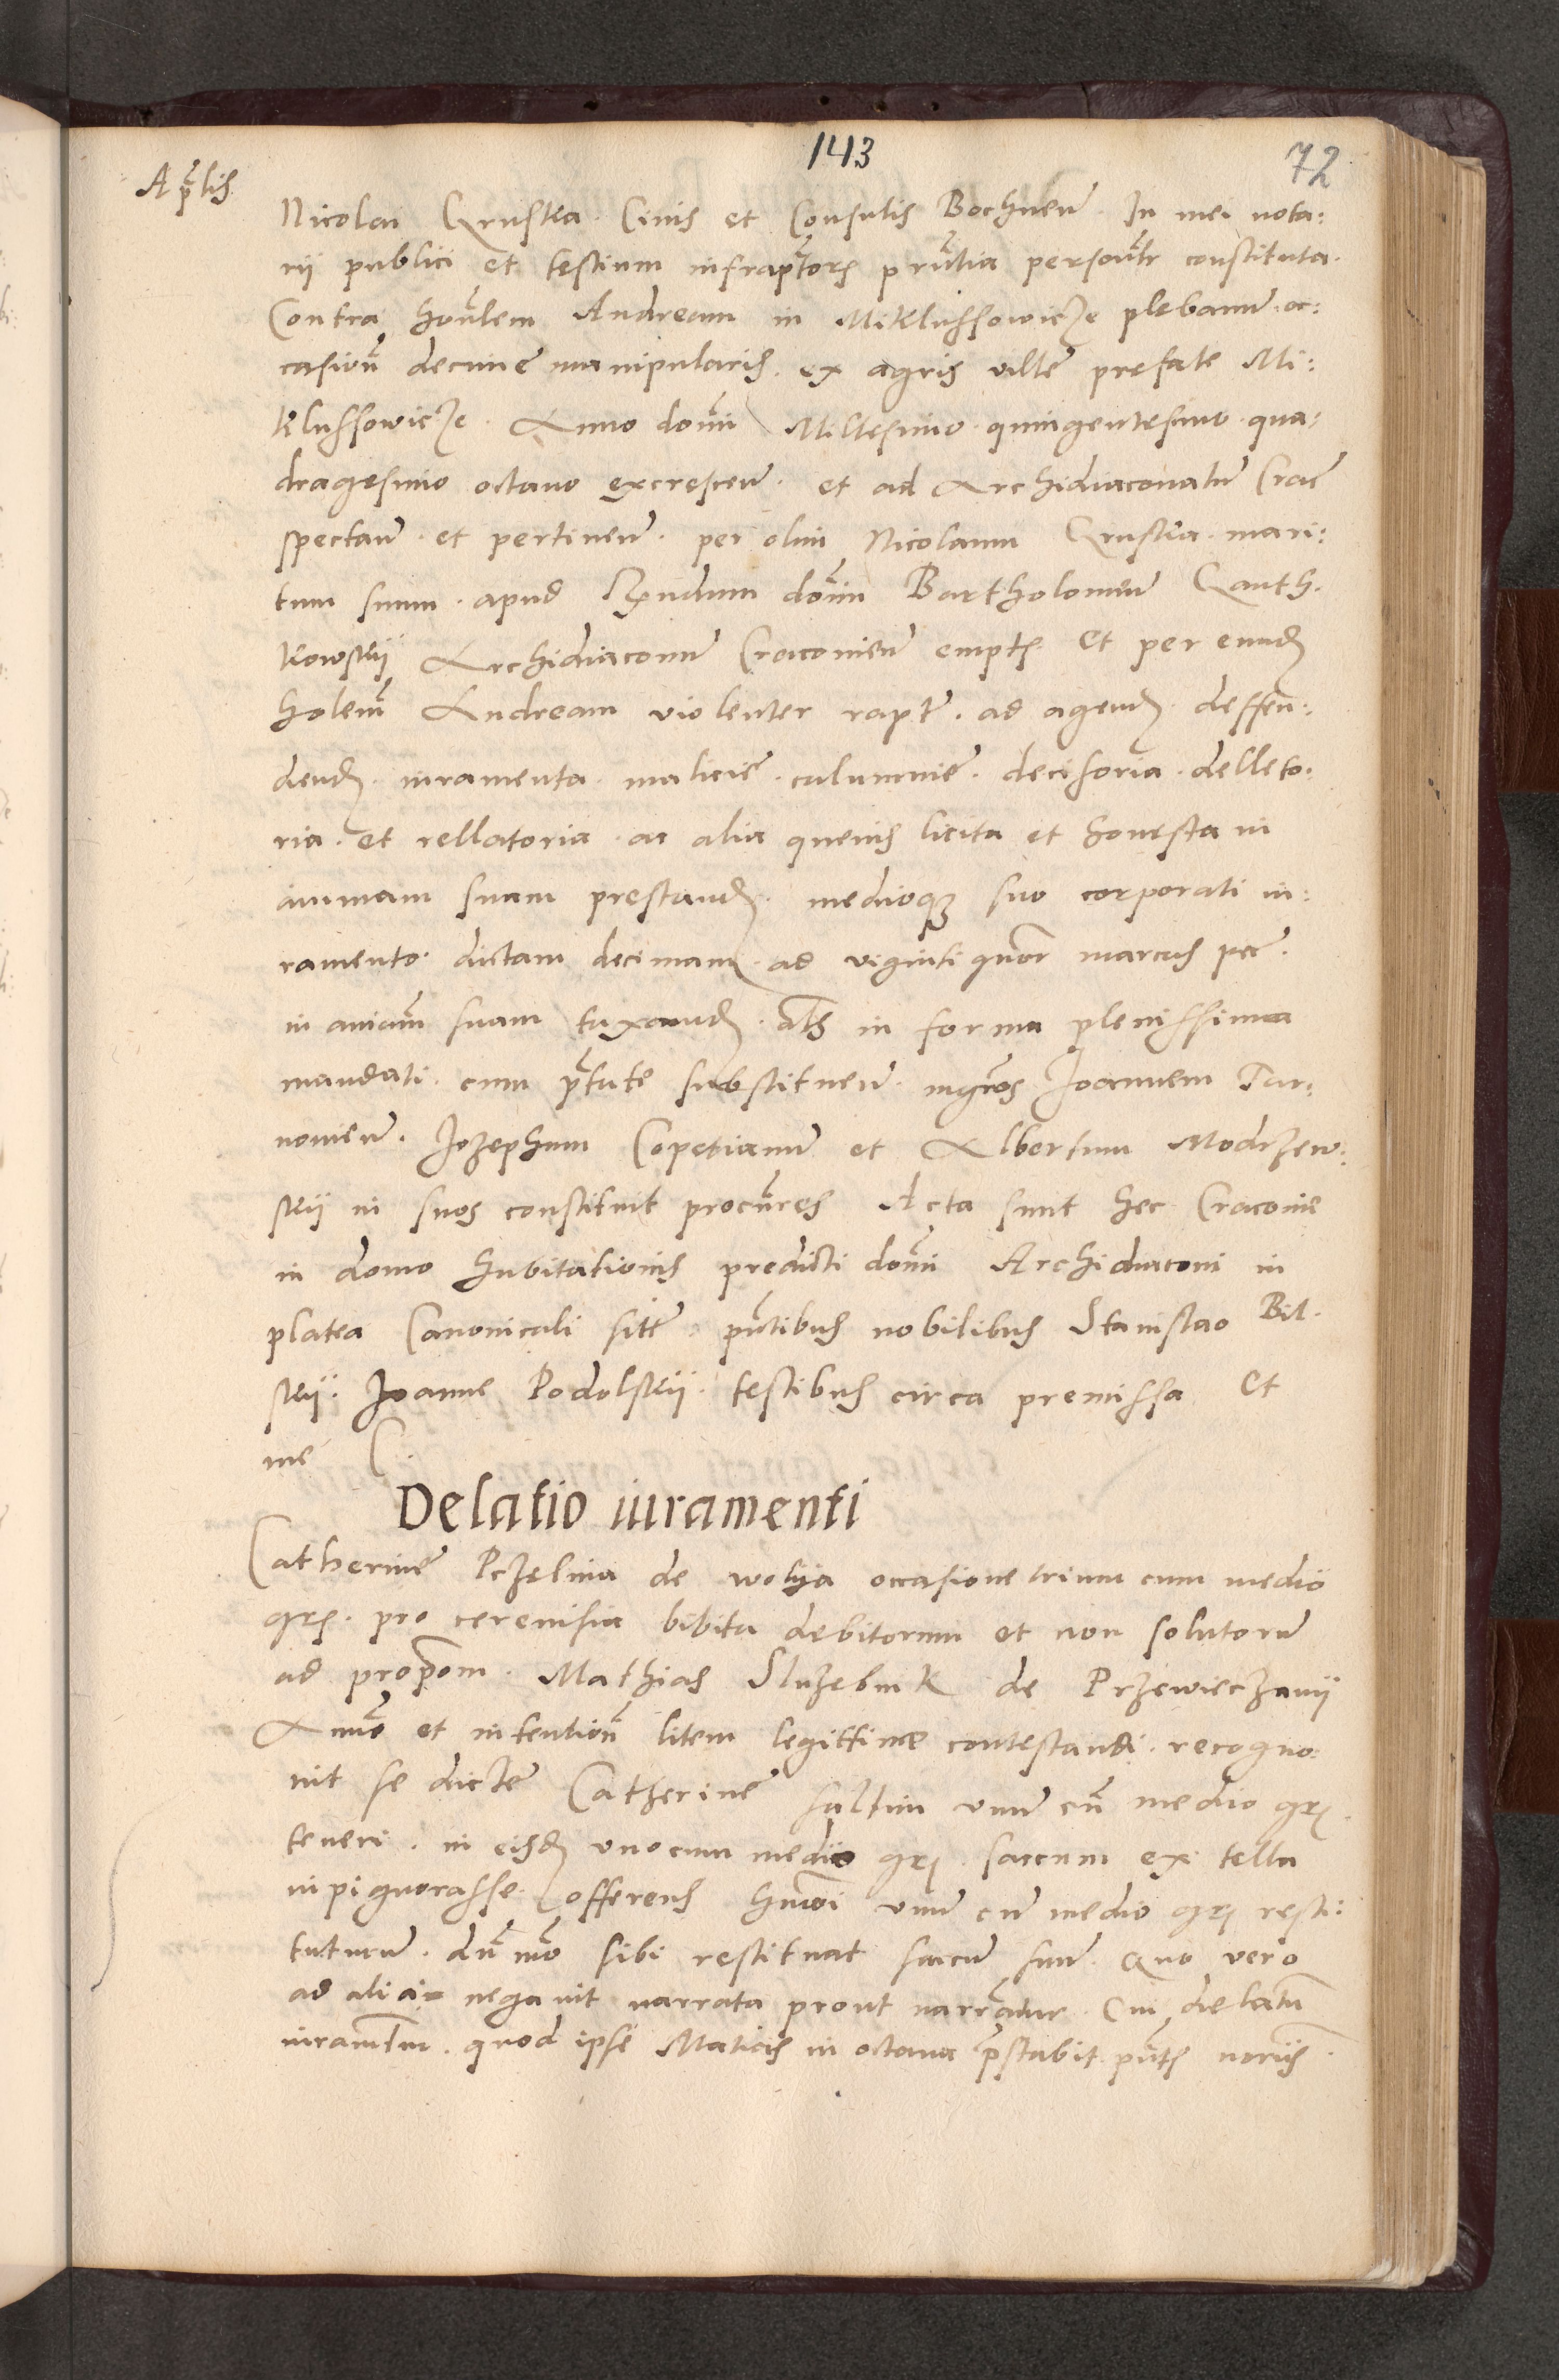 143
72
Aprłis
Nicolai Gruska Civis et Consulis Bochnen̄ In mei nota:
rij publici et testium infraptor̄ pn̄tia personłr constituta.
Contra honłem Andream in Miklussowicze plebanum oc:
casion̄ decime manipularis. ex agris ville prefate Mi:
klussowicze. Anno domi Millesimo quingentesimo qua:
dragesimo octavo excrescen̄. et ad Archidiaconatū Crac̄
spectan̄. et pertinen̄. per olim Nicolaum Gruska. mari:
tum suum. apud Rn̄dum domi Bartholomeū Ganth.
kowskij Archidiaconū Cracovien̄ empt̄ et per eund̄
holem̄ Andream violenter rapt̄. ad agend̄ deffen:
dend̄. iuramenta. malicie. calumnie. decisoria. delleto.
ria. et rellatoria. ac alia quevis licita et honesta in
animam suam prestand̄. medioq̨ suo corporali iu:
ramento dictam decimam. ad viginti quor̄ marcas pec̄.
in aniam̄ suam taxand̄. ałs in forma plenissima
mandati. cum pt̄ate substituen̄. mgr̄os Joannem Tar:
novien̄. Jozephum Copecianū et Albertum Modrzew:
skij in suos constituit procūres Acta sunt hec Cracovie
in domo habitationis predicti domi Archidiaconi in
platea Canonicali site pn̄tibus nobilibus Stanislao Bil
skij. Joanne Podolskij. testibus circa premissa et
me C
Delatio iuramenti
Catherine Pczelina de wolija occasione trium cum medio
gr̄. pro cerevisia bibita debitorum et non solutorū
ad propom̄. Mathias Sluzebnik de Przewieczanij
Animo et intention̄ litem legittime contestandi. recogno:
vit se dicte Catherine saltim unū cū medio gr̄.
teneri. in eisd̄ uno cum medio gr̄. saccum ex tella
inpignorasse. offerens hmōi unū cū medio gr̄ resti:
tuturū. dūmō sibi restituat sacū suū. Quo vero
ad alia negavit narrata prout narrantur. Cui delatū
iuramtum. quod ipse Maticis in octava pr̄stabit pn̄t